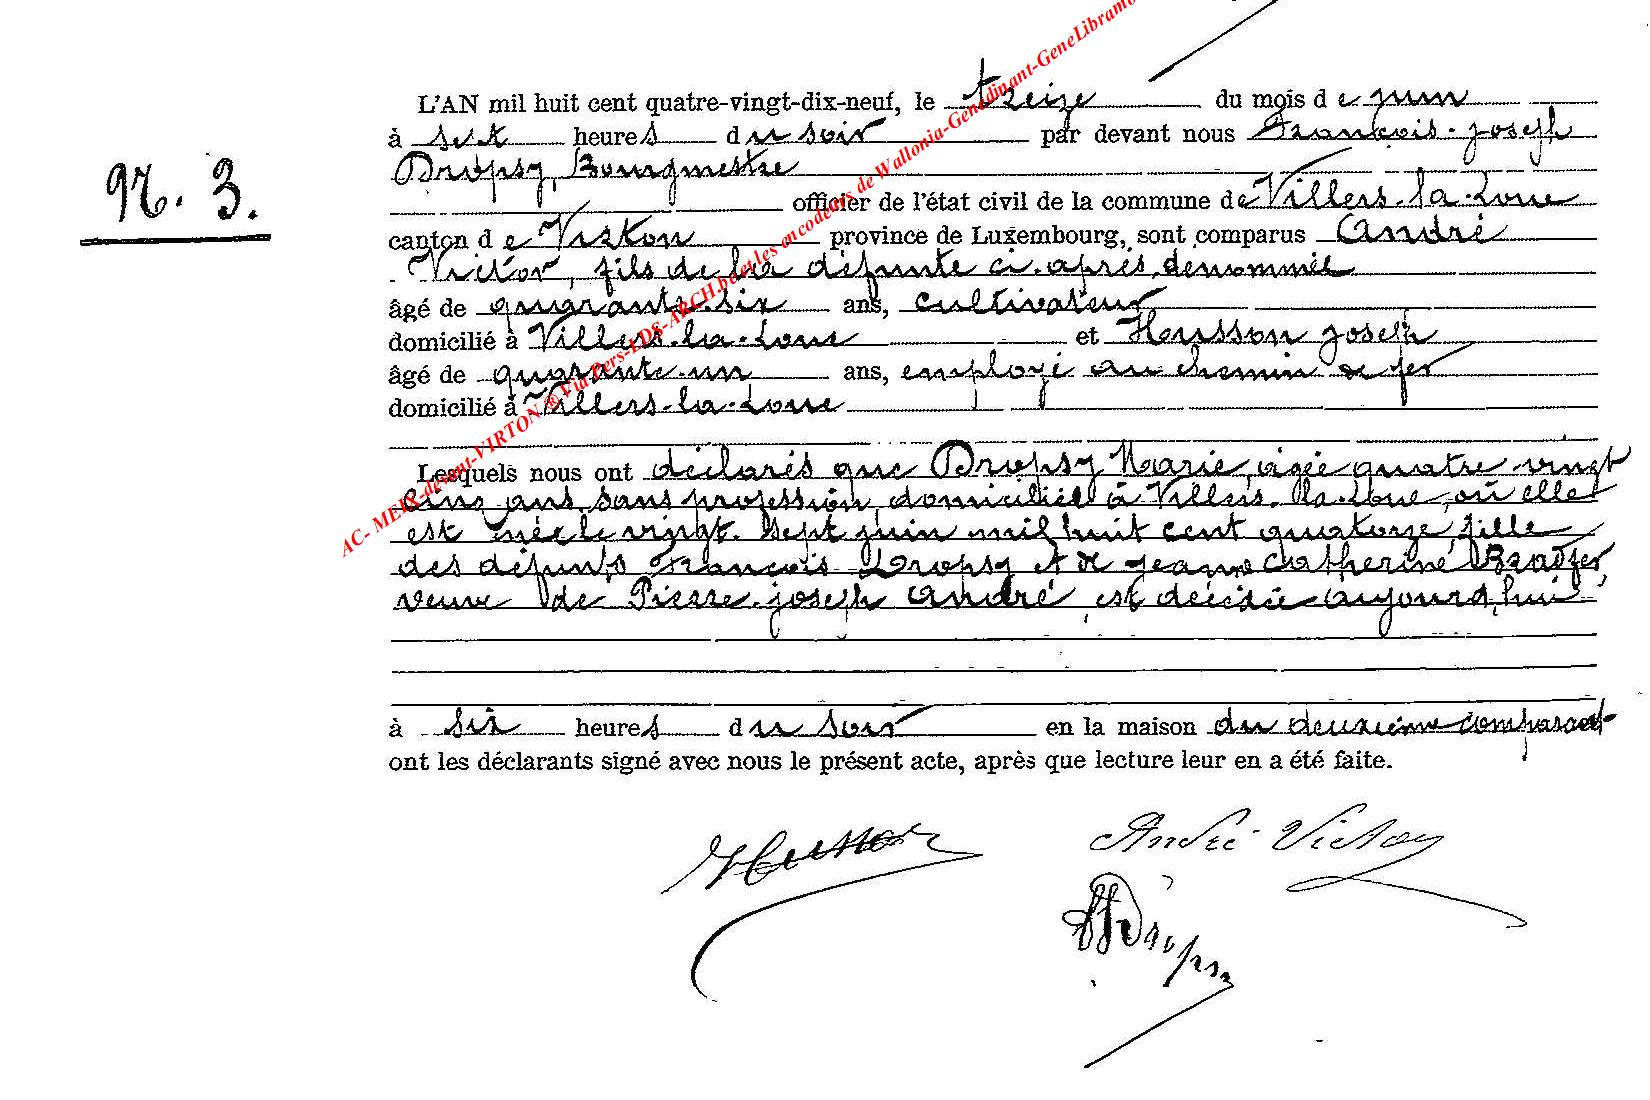 L'AN mil huit cent quatre-vingt-dix-neuf, le treize du mois de juin
à sept heures du soir par devant nous François-Joseph
Dropsy, Bourgmestre
officier de l'état civil de la commune de Villers-la-Loue
canton de Virton province de Luxembourg, sont comparus André
Victor, fils de la défunte ci-après dénommée
âgé de quarante-six ans, cultivateur
domicilié à Villers-la-Loue et Husson Joseph
âgé de quarante-un ans, employé au chemin de fer
domicilié à Villers-la-Loue
N. 3.
Lesquels nous ont déclarés que Dropsy Marie, agée quatre-vingt
cinq ans, sans profession, domiciliée à Villers-la-Loue, où elle
est née le vingt-sept juin mil huit cent quatorze, fille
des défunts François Dropsy et de Jeanne Catherine
veuve de Pierre-Joseph André est décédée aujourd'hui
à six heures du soir en la maison du deuxième comparant
ont les déclarants signé avec nous le présent acte, après que lecture leur en a été faite.
Husson André Victor
Dropsy
AC-MEIX-devant-VIRTON ® Via Pers-LDS-ARCH.be et les encodeurs de Wallonia-Genedinant-GeneLibramo